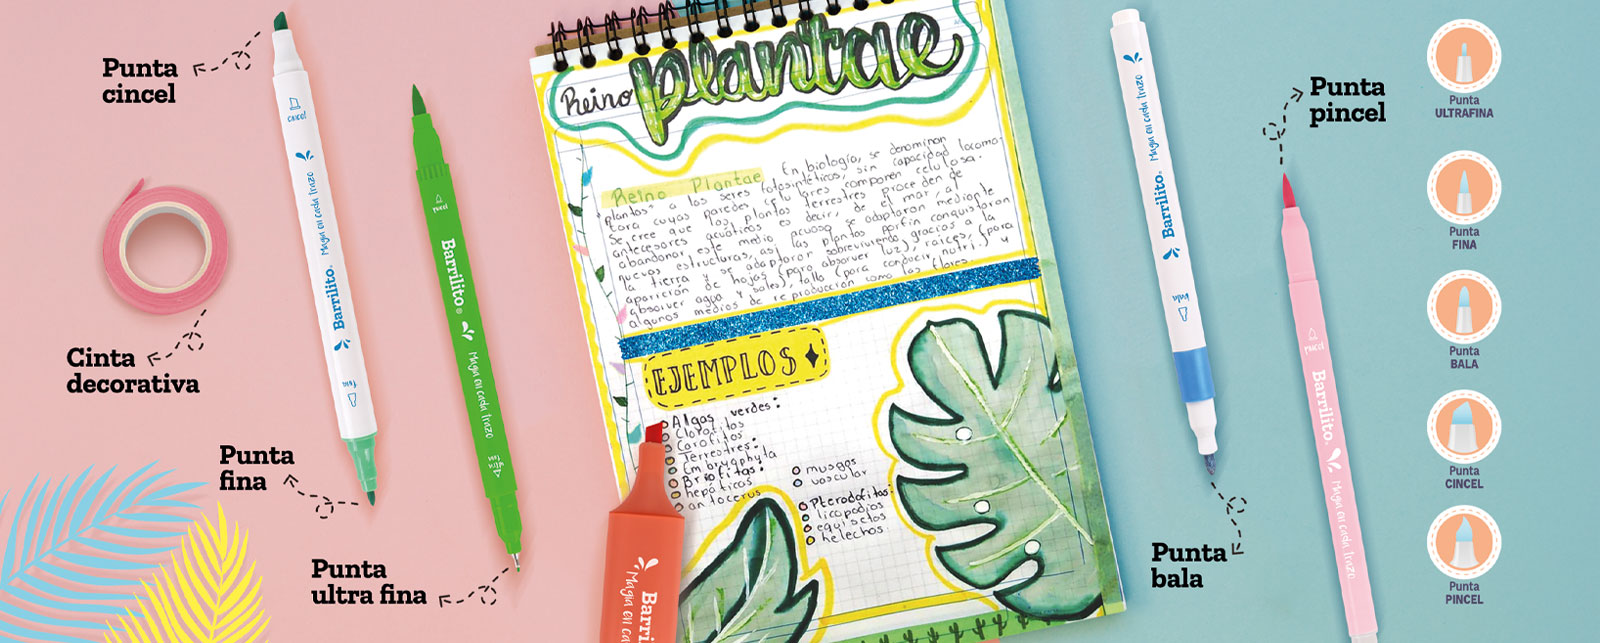 Punta
cincel
cincel
Barrilito.
Magia en cada trazo
fina
Cinta
decorativa
Punta
fina
Punta
ultra fina
pincel
Barrilito®
Magia en cada trazo
ultra fina
Reino plantae
Reino Plantae En biología, se denominan
plantas a los seres fotosintéticos, sin capacidad locomo-
tora cuyas paredes celulares componen celulosa.
Se cree que las plantas terrestres proceden de
antecesores acuáticos es decir, de el mar, al
abandonar este medio acuoso se adaptaron mediante
nuevas estructuras, así las plantas por fin conquistaron
la tierra y se adaptaron sobreviviendo gracias a la
aparición de hojas (para absorver luz), raíces, (para
absorver agua y sales), tallo (para conducir nutri.) y
algunos medios de reproducción como las flores.
EJEMPLOS
Algas verdes:
Clorofitas
Carofitas
Terrestres:
Embryophyta
Briofitas:
hepáticas
antoceros
musgos
vascular
Pterodofitas:
licopodios
equisetos
helechos
Barrilito
Magia en ca
Magia en cada trazo
Barrilito®
bala
Punta
bala
Punta
pincel
pincel
Barrilito.
Magia en cada trazo
Punta
ULTRAFINA
Punta
FINA
Punta
BALA
Punta
CINCEL
Punta
PINCEL